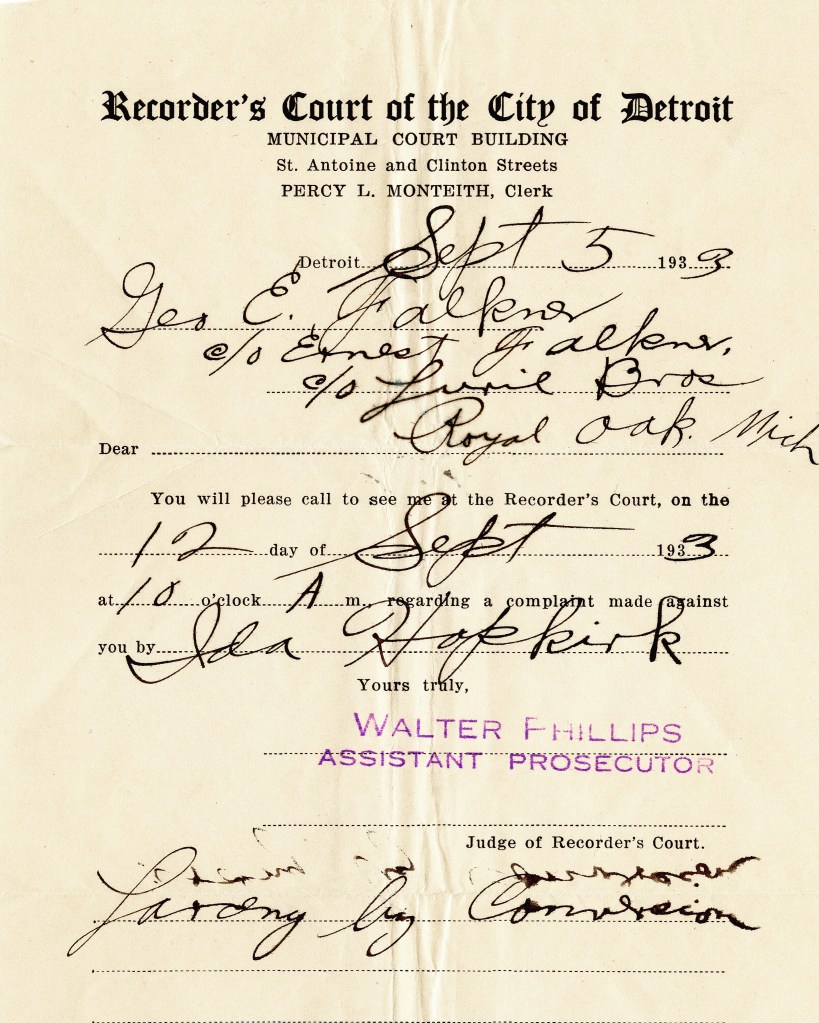 Recorder's Court of the City of Detroit
MUNICIPAL COURT BUILDING
St. Antoine and Clinton Streets
PERCY L. MONTEITH, Clerk
Detroit Sept 5 1933
Geo E. Falkner
c/o Ernest Falkner,
c/o Bros
Royal Oak. Mich
Dear
You will please call to see me at the Recorder's Court, on the
12 day of Sept 1933
at 10 o'clock A m., regarding a complaint made against
you by Ida Hopkirk
Yours truly,
WALTER PHILLIPS
ASSISTANT PROSECUTOR
Judge of Recorder's Court.
Larceny by Conversion